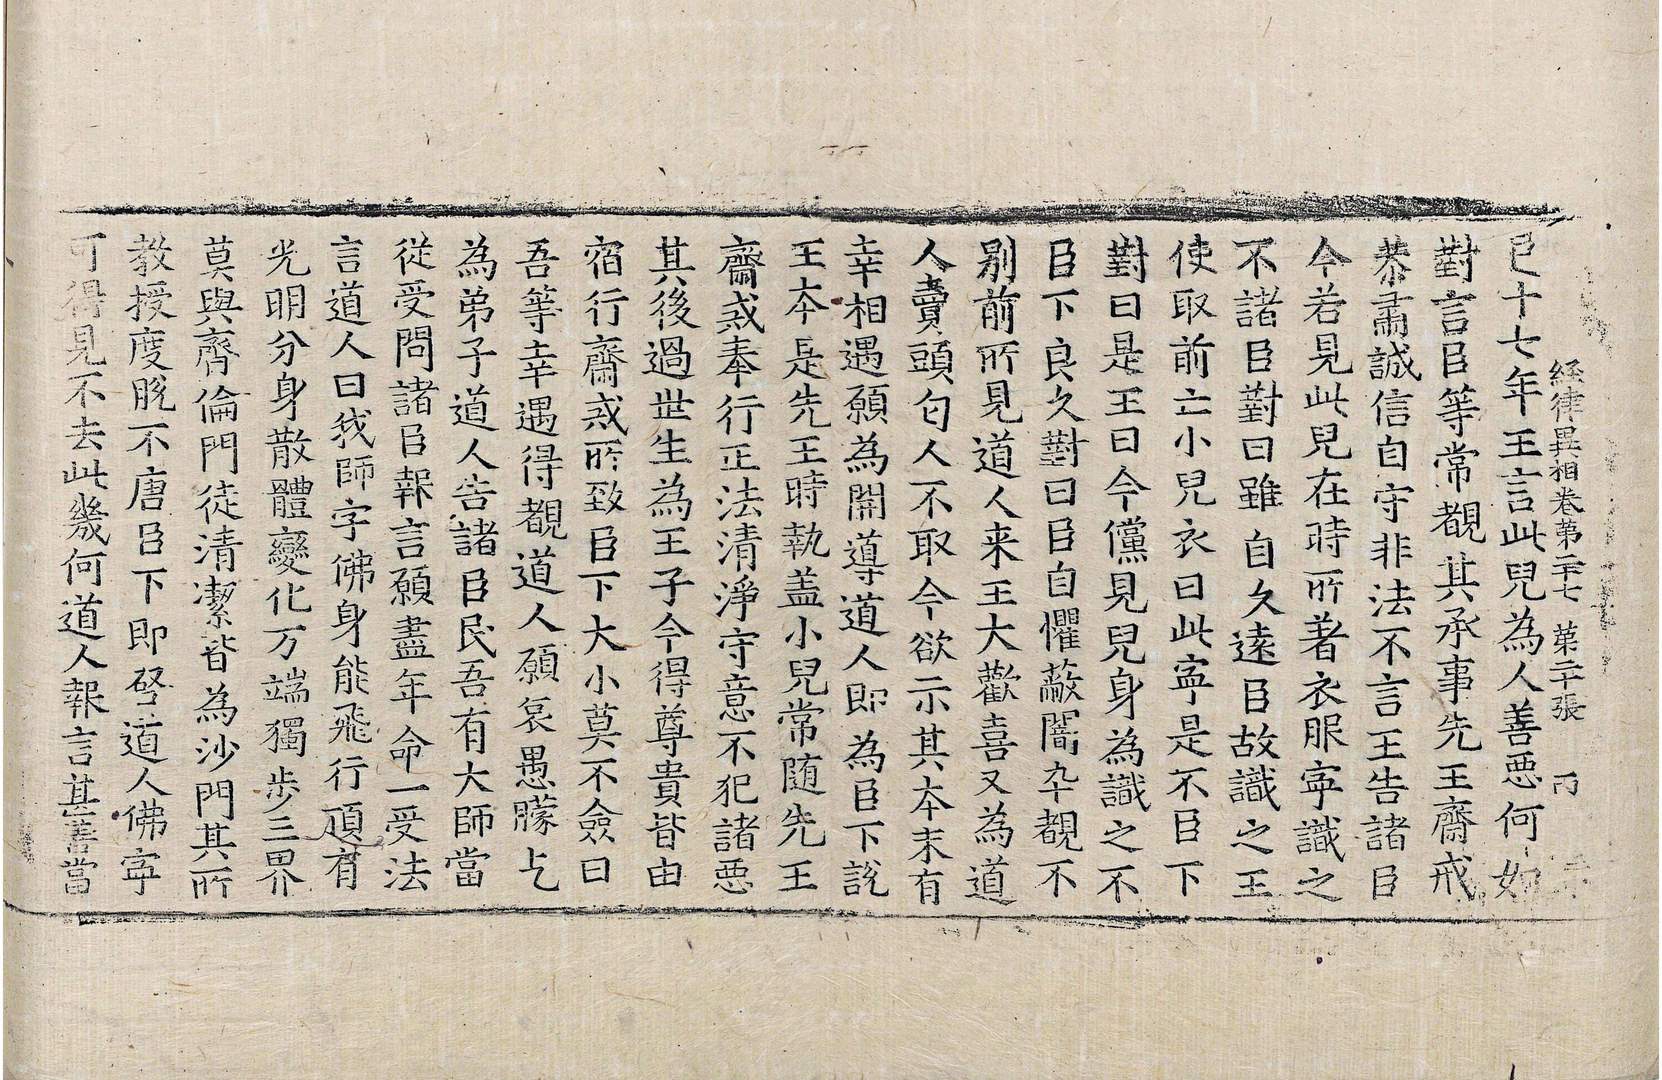 経律異相卷第二十七 第二十張 丙
已十七年王言此兒為人善惡何如
對言臣等常覩其承事先王齋戒
恭肅誠信自守非法不言王告諸臣
今若見此兒在時所著衣服寧識之
不諸臣對曰雖自久遠臣故識之王
使取前亡小兒衣曰此寧是不臣下
對曰是王曰今儻見兒身為識之不
臣下良久對曰臣自懼蔽闇卒覩不
別前所見道人来王大歡喜又為道
人賣頭匂人不取今欲示其本末有
幸相遇願為開導道人即為臣下說
王本是先王時執蓋小兒常随先王
齋戒奉行正法清淨守意不犯諸惡
其後過世生為王子今得尊貴皆由
宿行齋戒所致臣下大小莫不僉曰
吾等幸遇得覩道人願哀愚矇乞
為弟子道人告諸臣民吾有大師當
從受問諸臣報言願盡年命一受法
言道人曰我師字佛身能飛行項有
光明分身散體變化万端獨步三界
莫與齊倫門徒清潔皆為沙門其所
教授度脫不唐臣下即啓道人佛寧
可得見不去此幾何道人報言甚善當